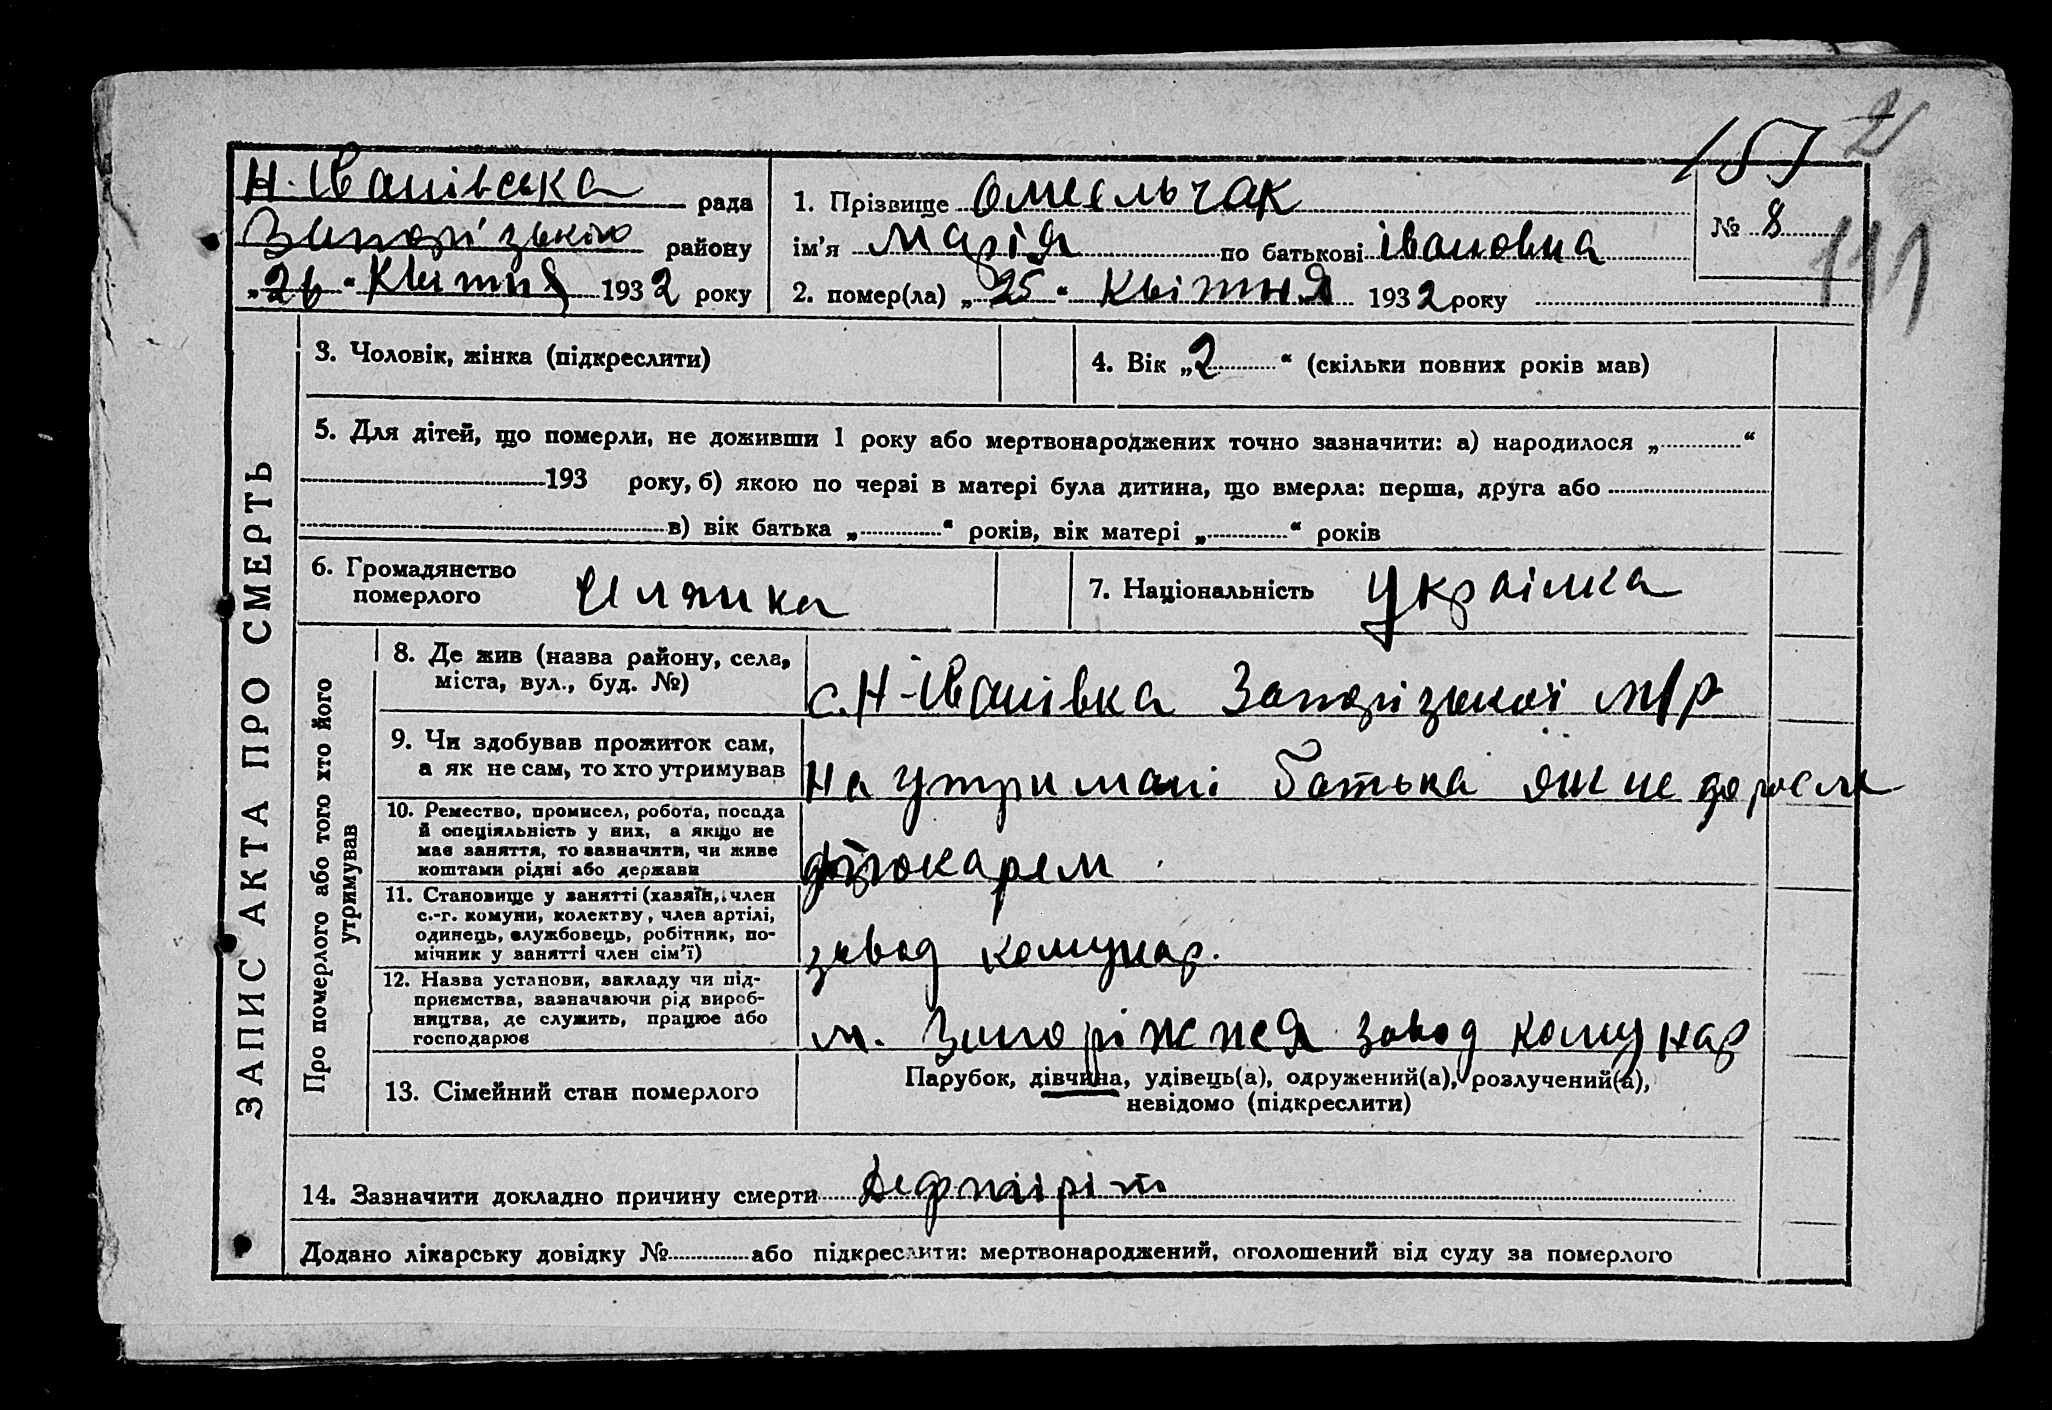 157 2
111
Н. Іванівська рада
Запорізького району
„ 26 “ Квитня 1932 року
1. Прізвище Омєльчак
ім'я Марія по батькові івановна
№ 8
2. помер(ла) „ 25 “ Квітня 1932 року
ЗАПИС АКТА ПРО СМЕРТЬ
3. Чоловік, жінка (підкреслити)
4. Вік „2“ (скільки повних років мав)
5. Для дітей, що померли, не доживши 1 року або мертвонароджених точно зазначити: а) народилося „ “
193 року, б) якою по черзі в матері була дитина, що вмерла: перша, друга або
в) вік батька „ “ років, вік матері „ “ років
6. Громадянство
померлого
7. Національність Українка
Про померлого або того хто його
утримував
8. Де жив (назва району, села,
міста, вул., буд. №)
с. Н-Іванівка Запорізької м/р
9. Чи здобував прожиток сам,
а як не сам, то хто утримував
На утримані батька
10. Ремество, промисел, робота, посада
й спеціяльність у них, а якщо не
має заняття, то зазначити, чи живе
коштами рідні або держави
токарем
11. Становище у занятті (хазяїн, член
с.-г. комуни, колективу, член артілі,
одинець, службовець, робітник, по-
мічник у занятті член сім'ї)
завод комунар.
12. Назва установи, закладу чи під-
приємства, зазначаючи рід вироб-
ництва, де служить, працює або
господарює
м. Запоріжжя завод комунар
13. Сімейний стан померлого
Парубок, дівчина, удівець(а), одружений(а), розлучений(а),
невідомо (підкреслити)
14. Зазначити докладно причину смерти Дефтіріт
Додано лікарську довідку № або підкреслити: мертвонароджений, оголошений від суду за померлого